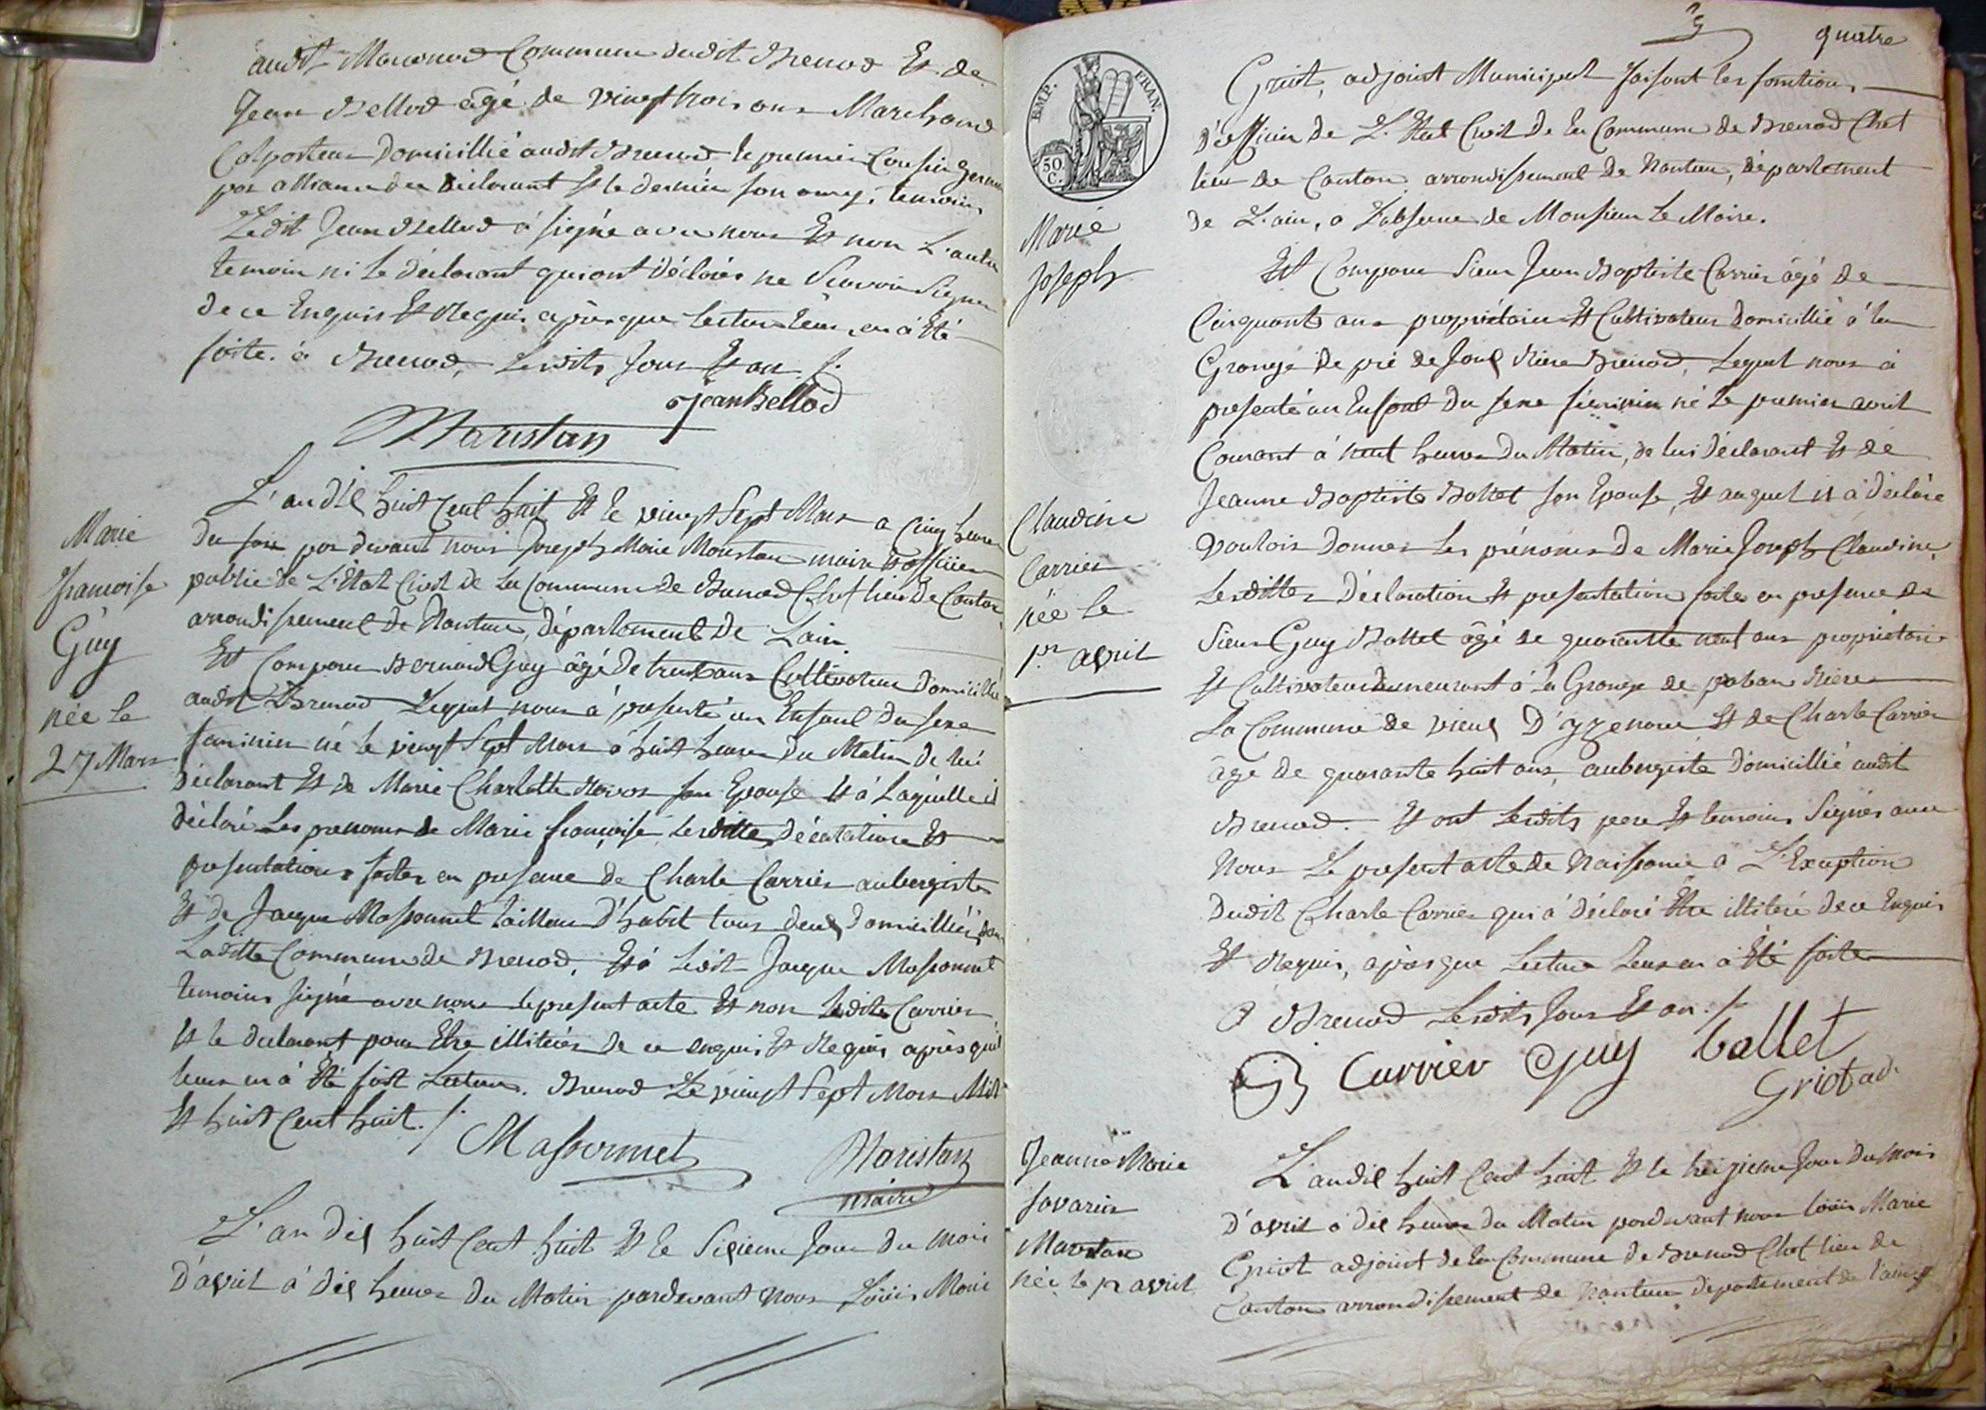 audit Commune dudit Brenod Et de
Jean Bellod âgé de vingt trois ans Marchand
Colporteur Domicillié audit Brenod le premier Cousin germain
par alliance du déclarant Et le dernier son amy, temoins
Ledit Jean Bellod á signé avec nous Et non L'autre
temoin ni le déclarant qui ont déclarés ne Scavoir Signer
de ce Enquis Et Requis après que lecture leur en á Eté
faite. á Brenod, Lesdits Jour Et an /.
Jean Bellod
L'an dix huit Cent huit Et le vingt Sept Mars a Cinq heures
Du soir par devant nous Joseph Marie maire officier
public de L'Etat Civil de La Commune de Brenod Chef lieu De Canton
arrondissement de Nantua, département de Lain
Marie
françoise
Guy
née le
27 Mars
Et Comparu Bernard Guy âgé de trente ans Cultivateur Domicillié
audit Brenod Lequel nous á présenté un Enfant Du sexe
feminin né le vingt Sept Mars á huit heures Du Matin De lui
Déclarant Et de Marie Charlotte son Epouse Et á Laquelle il
déclaré Les prenoms de Marie françoise Lesdittes Et
presentations faites en presence de Charle Carrier aubergiste
Et de Jacque Massonnet tailleur D'habit tous deux domicilliés dans
Laditte Commune de Brenod, Et á Ledit Jacque Massonnet
temoins signé avec nous le present acte Et non Ledit Carrier
Et le declarant pour Etre illiterés de ce enquis Et Requis après quil
leur en á Eté fait Lecture. Brenod Le vingt Sept Mars Mil
Et huit Cent huit. /.
Massonnet
maire
L'an dix huit Cent huit Et le Sixieme Jour du mois
D'avril á dix heures Du Matin pardevant nous Loüis Marie
quatre
EMP. FRAN.
50 C.
Griot, adjoint Municipal faisant les fonctions
D'officier de L'Etat Civil de La Commune de Brenod Chef
lieu de Canton arrondissement de Nantua, département
de L'ain, a L'absence de Monsieur Le Maire.
Marie
Joseph
Claudine
Carrier
née le
1er avril
Et Comparu Sieur Jean Baptiste Carrier âgé de
Cinquante ans propriétaire Et Cultivateur Domicillié á la
Grange de pré de Joux Riere Brenod, Lequel nous á
presenté un Enfant Du sexe féminin né Le premier avril
Courant á neuf heures Du Matin, de lui déclarant Et de
Jeanne Baptiste Ballet son Epouse, Et auquel il á déclaré
vouloir Donner Les prénoms de Marie Joseph Claudine,
Lesdittes Déclaration Et presentation faites en presence de
Sieur Guy Ballet âgé de quarantte neuf ans propriétaire
Et Cultivateur Demeurant á La Grange de Riere
La Commune de vieux D'yzenave Et de Charle Carrier
âgé de quarante huit ans, aubergiste Domicillié audit
Brenod. Et ont Lesdits pere Et temoins Signés avec
Nous Le present acte de Naissance a L'Exception
Dudit Charle Carrier qui á déclaré Etre illiteré de ce Enquis
Et Requis, après que Lecture Leur en á Eté faite
á Brenod Lesdits Jour Et an. /.
Carrier Guy ballet
Griot ad.
Jeanne Marie
Savarin
née le 12 avril
L'an dix huit Cent huit Et le treizieme Jour Du mois
D'avril á dix heures Du Matin pardevant nous loüis Marie
Griot adjoint de La Commune de Brenod Chef lieu de
Canton arrondissement de Nantua departement de l'ain